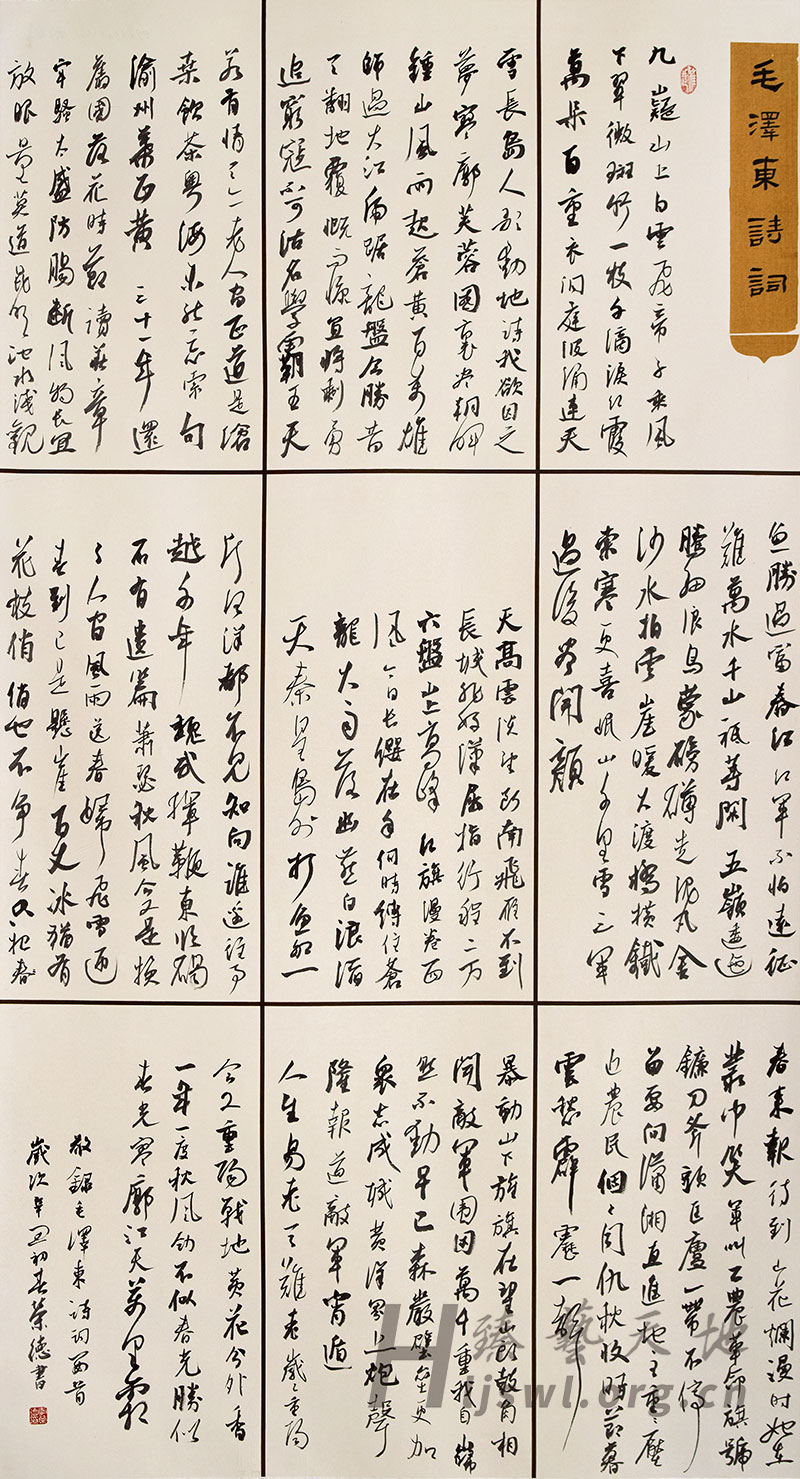 毛澤東詩詞
九嶷山上白雲飛帝子乘風
下翠微斑竹一枝千滴淚紅霞
萬朵百重衣洞庭波涌連天
雪長島人歌動地詩我欲因之
夢寥廓芙蓉國裏盡朝暉
鍾山風雨起蒼黄百萬雄
師過大江虎踞龍盤今勝昔
天翻地覆慨而慷宜將剩勇
追窮寇不可沽名學霸王天
若有情天亦老人間正道是滄
桑飲茶粵海未能忘索句
渝州葉正黄 三十一年還
舊國落花時節讀華章
牢騷太盛防腸斷風物長宜
放眼量莫道昆明池水淺觀
魚勝過富春江紅軍不怕遠征
難萬水千山祗等閑五嶺逶迤
騰細浪烏蒙磅礴走泥丸金
沙水拍雲崖暖大渡橋橫鐵
索寒更喜岷山千里雪三軍
過後盡開顏
天高雲淡望斷南飛雁不到
長城非好漢屈指行程二万
六盤山上高峰紅旗漫卷西
風今日長纓在手何時縛住蒼
龍大雨落幽燕白浪滔
天秦皇島外打魚船一
片汪洋都不見知向誰邊往事
越千年魏武揮鞭東臨碣
石有遺篇蕭瑟秋風今又是換
了人間風雨送春歸飛雪迎
春到已是懸崖百丈冰猶有
花枝俏俏也不爭春只把春
春來報待到山花爛漫時她在
叢中笑軍叫工農革命旗號
鐮刀斧頭匡廬一帶不停
留要向瀟湘直進地主重々壓
迫農民個々同仇秋收時節暮
雲愁霹靂一聲
暴動山下旌旗在望山頭鼓角相
聞敵軍圍困萬千重我自巋
然不動早已森嚴壁壘更加
衆志成城黄洋界上炮聲
隆報道敵軍宵遁
人生易老天難老歲々重陽
今又重陽戰地黄花分外香
一年一度秋風勁不似春光勝似
春光寥廓江天萬里霜
敬錄毛澤東詩詞首
歲次辛丑初春榮德書
臻藝天地
Hljswl.org.cn